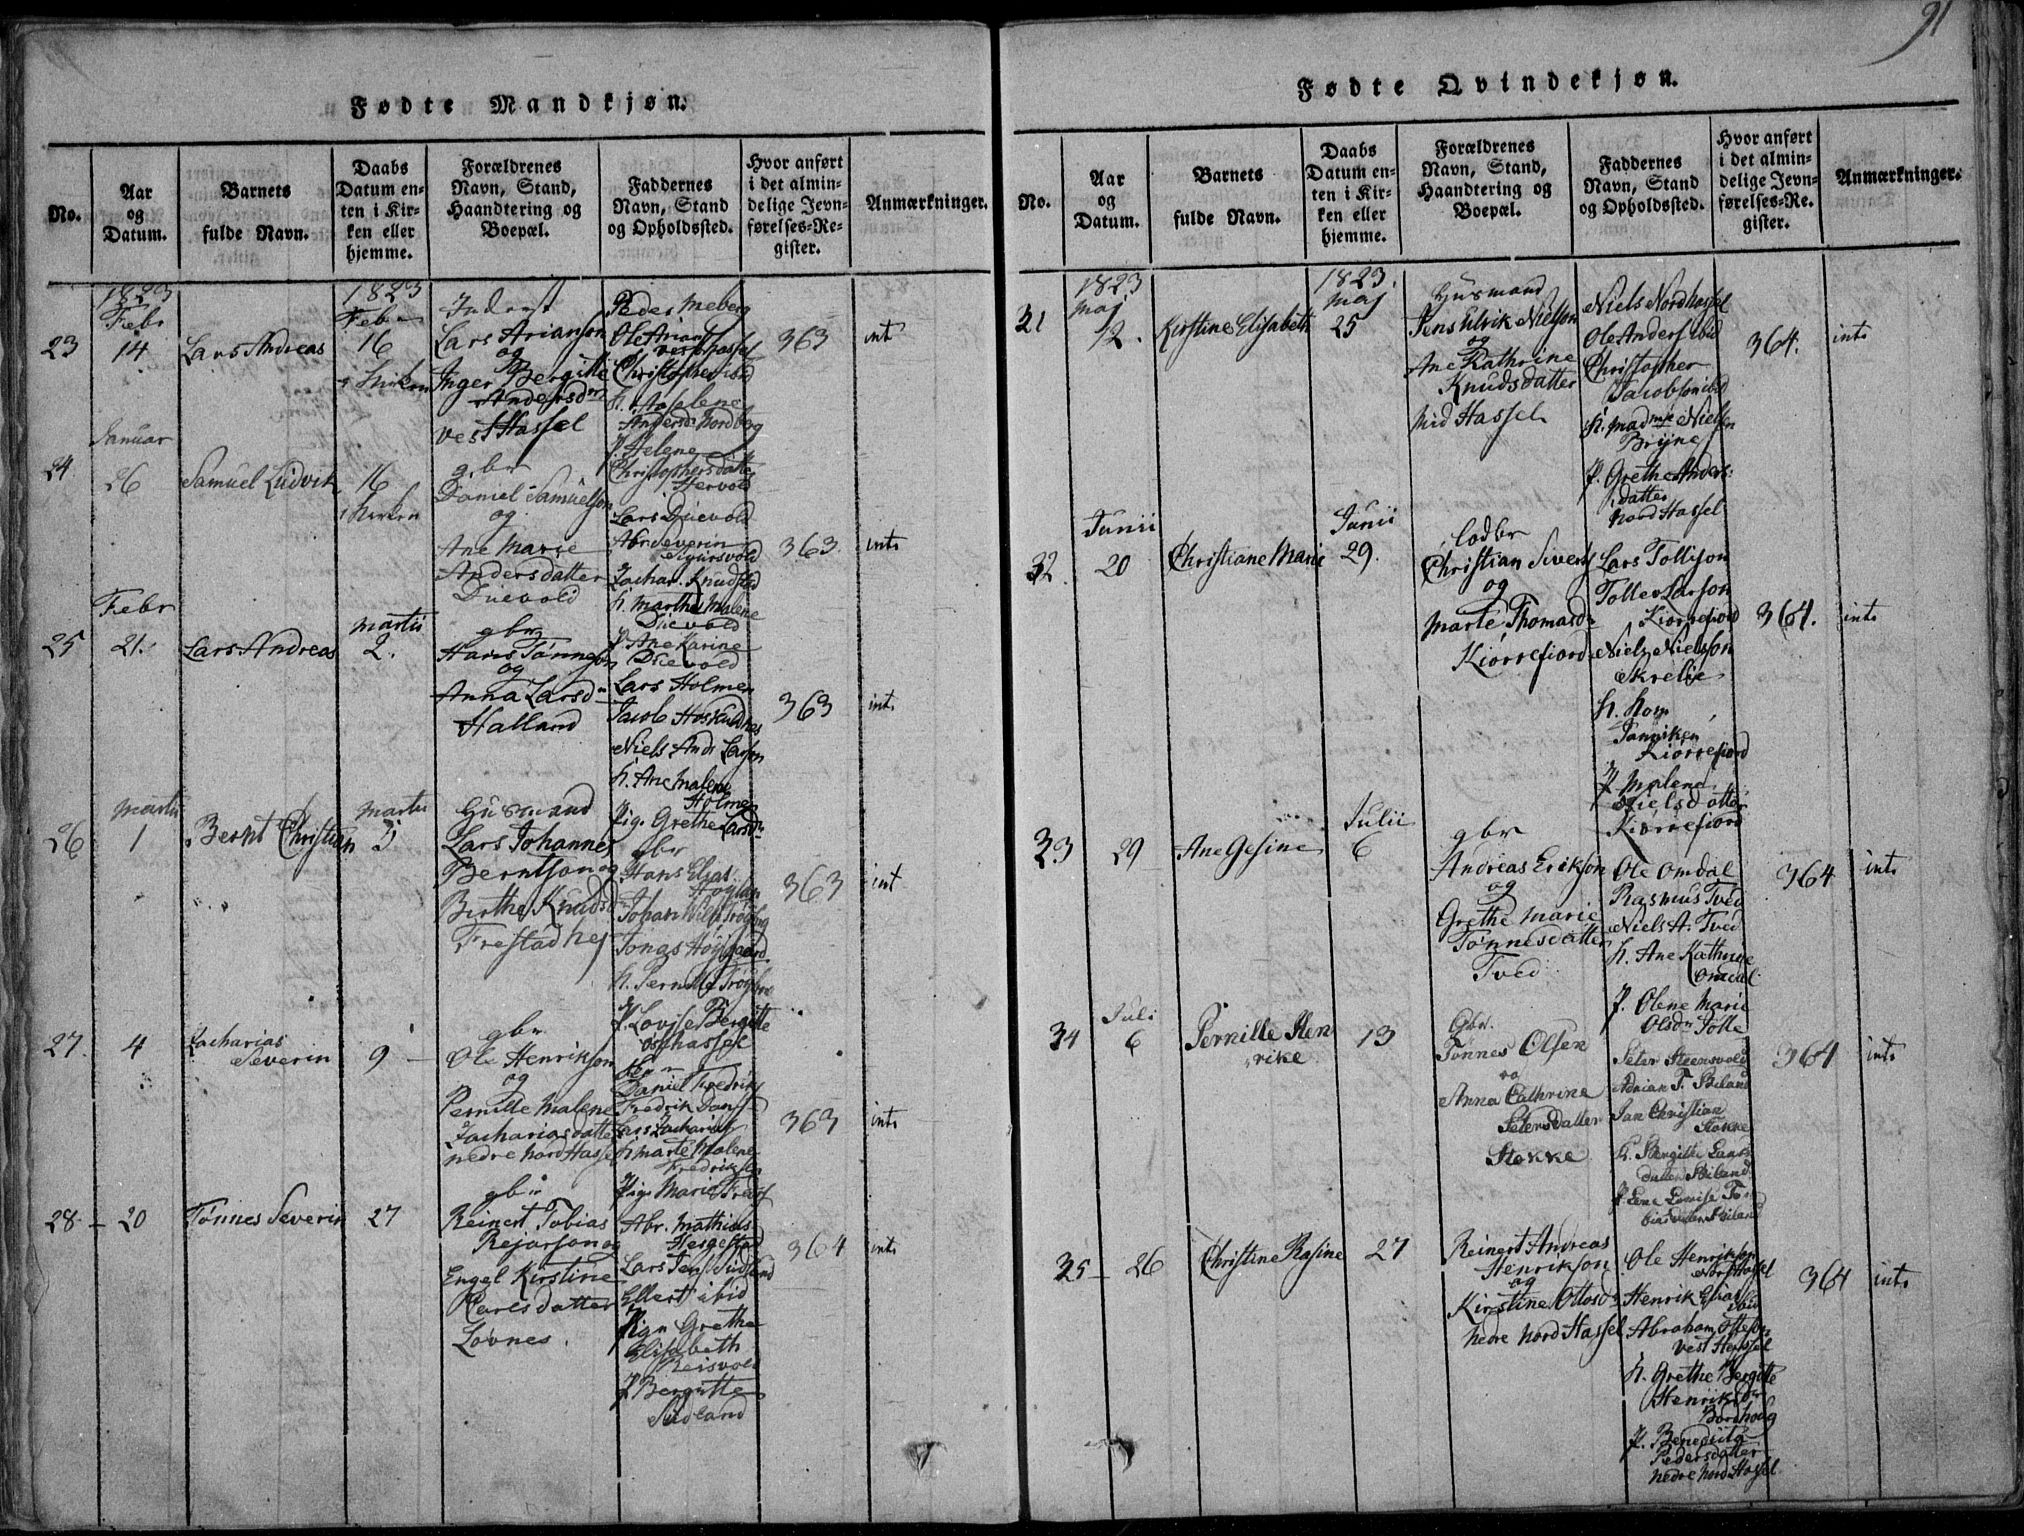 91
Fødte Mandkjøn.
No.
Aar
og
Datum.
Barnets
fulde Navn.
Daabs
Datum en-
ten i Kir-
ken eller
hjemme.
Forældrenes
Navn, Stand,
Haandtering og
Boepæl.
Faddernes
Navn, Stand
og Opholdssted.
Hvor anført
i det almin-
delige Jevn-
førelses-Re-
gister.
Anmærkninger.
23
1823
Febr
14
Lars Andreas
1823
Febr
16
Inderst
Lars Arianson
og
Inger Bergitte
Andersdr
Vest Hassel
Peder Meberg
Vest Hassel
Christopher ibid
Anders Nordberg
P. Helene
Christophersdatter
363
int
24
Januar
26
Samuel Ludvik
16
i Kirken
gbr
Daniel Samuelson
og
Ane Marie
Andersdatter
Duevold
Lars Duevold
Abr Severin
Zachar. Knudsen
h. Marthe Malene
Duevold
P. Ane Karine
Duevold
363.
int.
25
Febr
21.
Lars Andreas
Martii
2.
gbr
Hans Tønneson
og
Anna Larsdr
Halland
Lars Holmen
Niels Andr Larsen
h. Ane Malene
Holmen
Pig. Grethe Larsdr
363
int.
26
Martii
1
Bernt Christian
Martii
Husmand
Lars Johannes
Berntson og
Birthe Knudsd
Frestad hej
gbr
Hans Elias
Jonas Høysgaard
P. Lovise Bergitte
Østhassel
363
int
27.
4
Zacharias
Severin
9
gbr
Ole Henrikson
og
Pernille Malene
Zachariasdatter
nedre Nord Hassel
Daniel Fredriks
Fredrik Dans
Lars Zacharias
h Marte Malene
Fredriksen
Pig. Marie
363
int.
28
20
Tønnes Severin
27
gbr
Reinert Tobias
Rejarson og
Engel Kirstine
Carlsdatter
Lovnes.
Abr. Mathias
Hergestad
Lars Jens Sudland
Ellert ibid
Pign Grethe
Elisabeth
Reisvold
P Bergitte
Sudland
364
int.
Fødte Qvindekjøn.
No.
Aar
og
Datum.
Barnets
fulde Navn.
Daabs
Datum en-
ten i Kir-
ken eller
hjemme.
Forældrenes
Navn, Stand,
Haandtering og
Boepæl.
Faddernes
Navn, Stand
og Opholdssted.
Hvor anført
i det almin-
delige Jevn-
førelses-Re-
gister.
Anmærkninger.
31
1823
Maj
12.
Kirstine Elisabeth
1823.
Maj
25
Husmand
Jens Ulrik Nielson
og
Ane Kathrine
Knudsdatter
Mid Hassel
Niels Nordhassel
Ole Anders ibid
Christopher
Jacobson ibid
Bryne
P. Grethe Anders-
datter
Nord Hassel
364.
int.
32.
Junii
20
Christiane Marie
Junii
29.
Christian Sivers
og
Marte Thomasdr
Kiørrefiord
Lars Tollison
Tolle Larson
Kiørrefiord
Niels Nielsson
Skrelie
h. hom
Janniken
Kiørrefiord
P Malene
Nielsdatter
Kiørrefiord
364.
int.
33
29
Ane Gesine
Julii
6
gbr
Andreas Erikson
og
Grethe Marie
Tønnesdatter
Tved
Ole Omdal
Rasmus Tved
Niels A. Tved
h. Ane Kathrine
Omdal
P. Olene Marie
Olsdr Jolle
364
int.
34
Juli
6
Pernille Hen
rike
13
Gbr.
Tønnes Olsen
og
Anna Cathrine
Petersdatter
Stokke
Peter Steensvold
Adrian T. Skiland
Jan Christian
Stokke
h. Bergitte Lars
datter Skiland
P. Lene Lovise To
biasdatter Skiland
364
int.
35
26
Christine Rasine
27
Reinert Andreas
Henrikson
og
Kirstine Ottosdr
nedre Nord Hassel
Ole Henrikson
Nord Hassel
Henrik Elias
ibid
Abraham Otteson
Vest Hassel
h. Grethe Bergitte
Henriksdr
Bordhoug
P. Benedicta
Pedersdatter
nedre Nord Hassel
364
int.